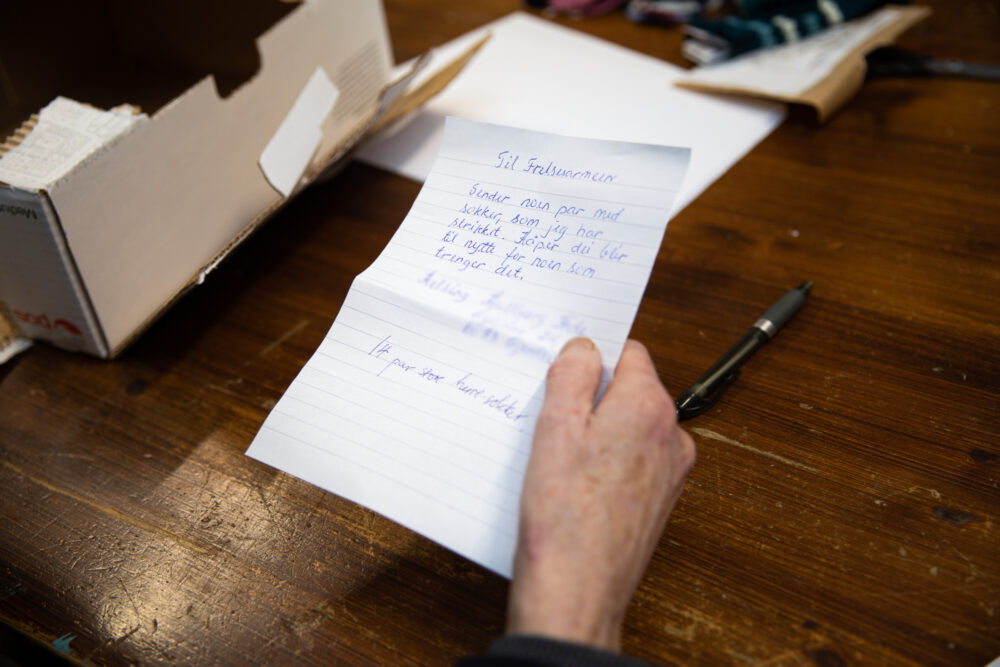 Til Frelsesarmeen
Sender noen par med
sokker, som jeg har
strikket. Håper de blir
til nytte for noen som
trenger det.
Hilsing
14 par store herre-sokker.
Medium